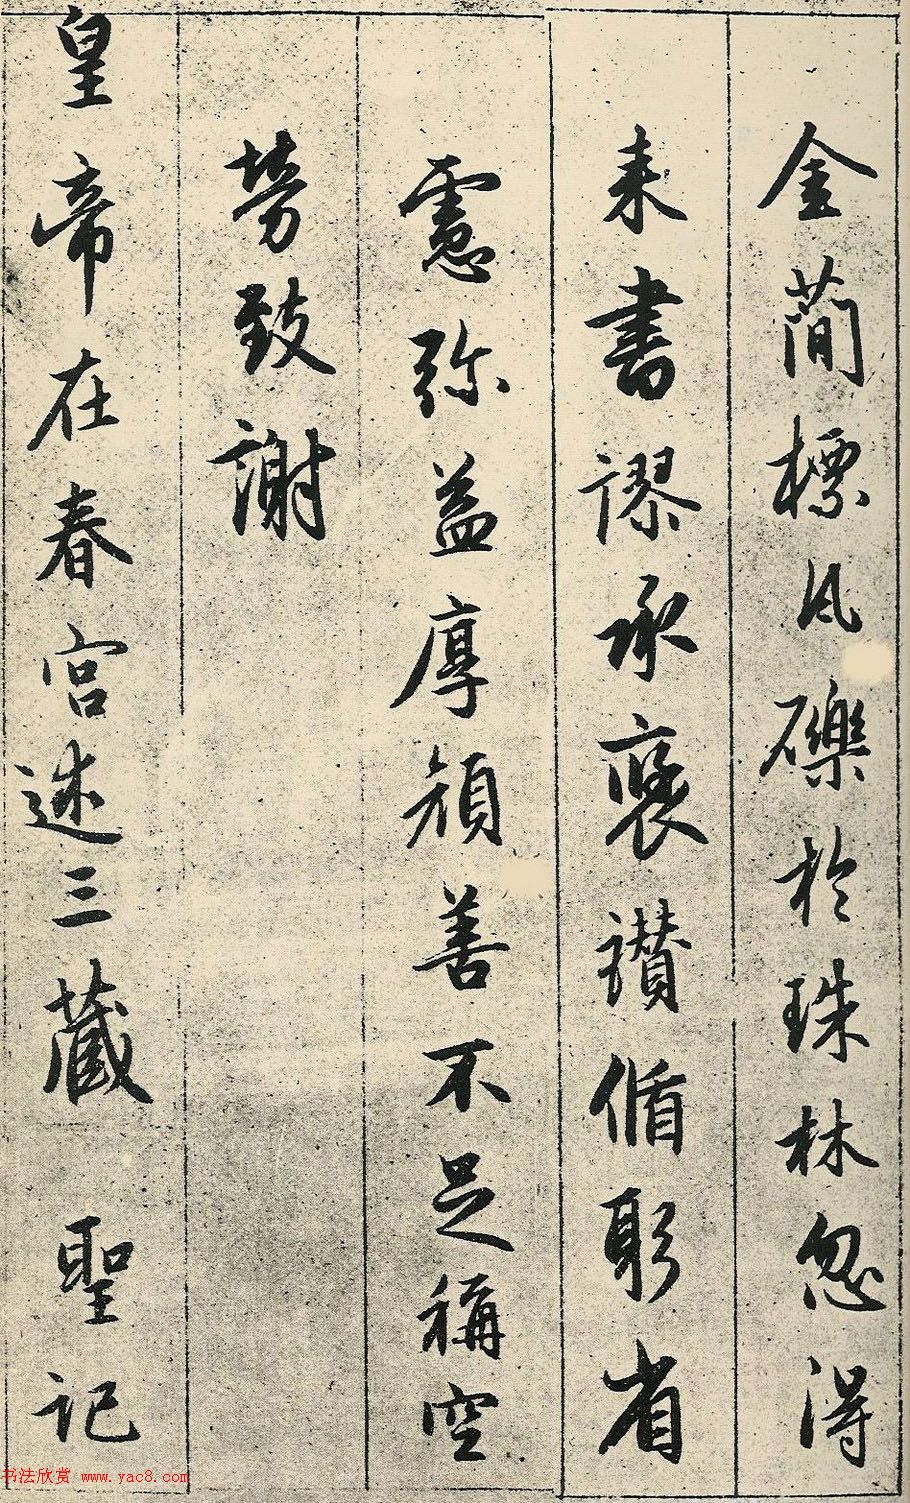 金簡標瓦礫於珠林忽得
来書謬承褒讃循躬省
慮弥益厚顔善不足稱空
勞致謝
皇帝在春宮述三藏聖記
书法欣赏 www.yac8.com